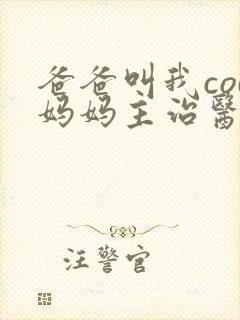 爸爸叫我co
妈妈主治醫
汪警官